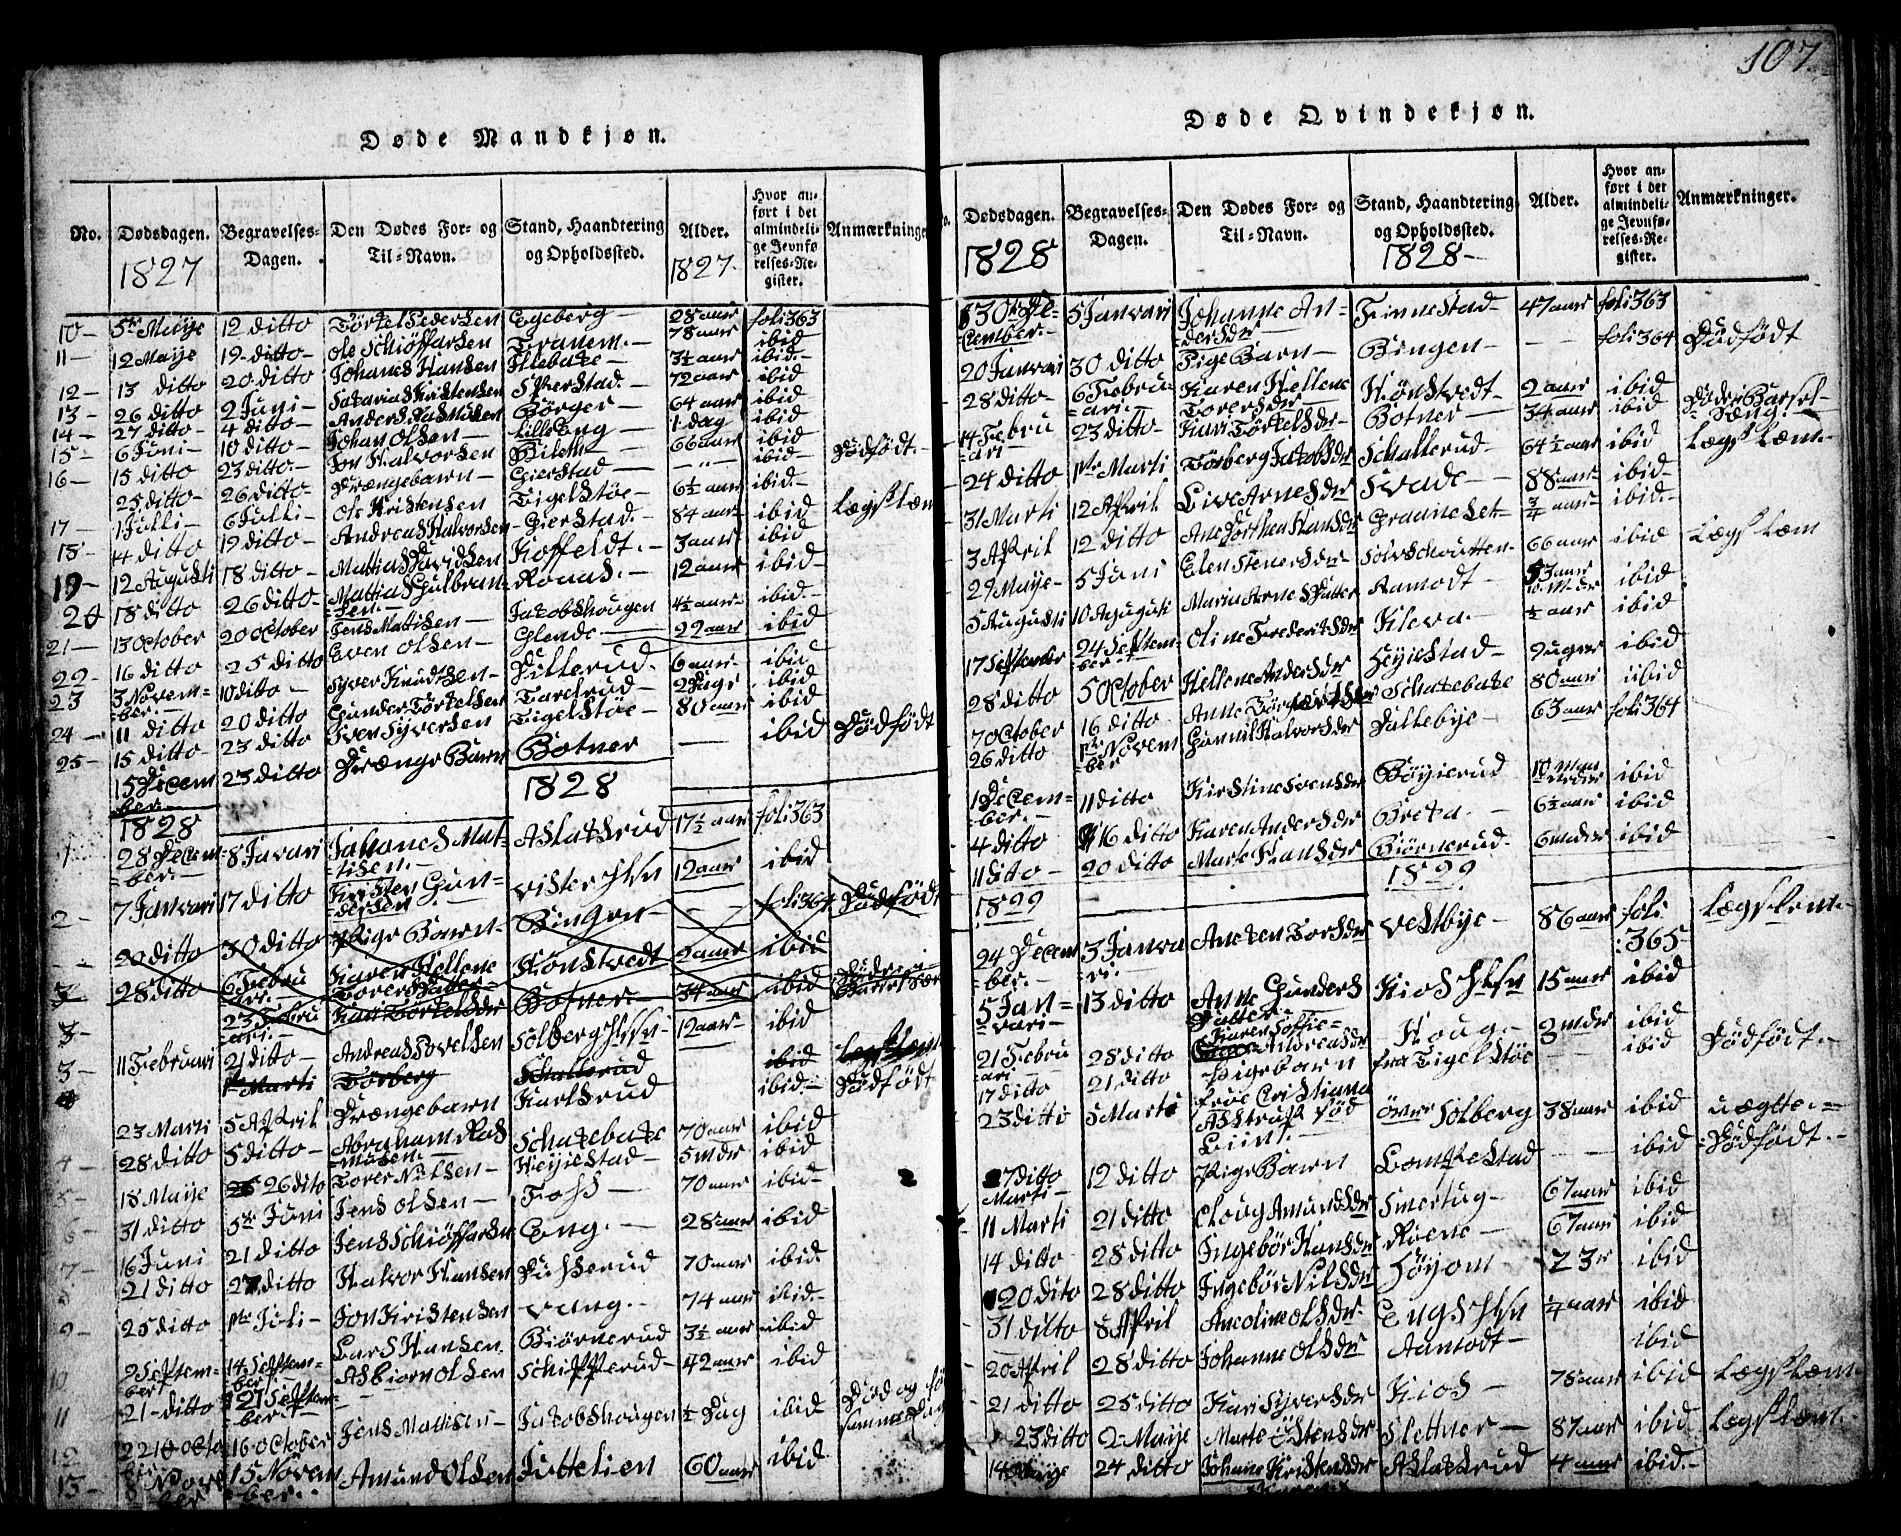 107.
Døde Mandkjøn.
No. Dødsdagen. 1827 Begravelses-Dagen. Den Dødes For- og Til-Navn. Stand, Haandtering og Opholdssted. Alder. 1827. Hvor anført i det almindelige Jevnførelses-Register. Anmærkninge
10 - 5te Maÿe 12 ditto Törkel Pedersen Egeberg - 28 aar foli 363
11 - 12 Maÿe 19 ditto - Ole Schiöffarsen Tranem. - 78 aar ibid
12 - 13 ditto 20 ditto Johanes Hansen Fllebake - 3½ aar ibid -
13 - 26 ditto 2 Juni - Sakarias Kristensen 72 aar ibid
14 - 27 ditto - 4 ditto - Anders Rasmusen Börger - 64 aar ibid
15 - 6 Juni - 10 ditto - Johan Olsen - Lille Eng - 1 dag ibid
16 - 15 ditto 23 ditto - Jon Halvorsen 66 aar ibid
25 ditto - 26 ditto - Drængebarn - Gierstad - - ibid - Dödfödt. -
17 - 1 Julli - 6 Julli - Ole Kristensen Tigelstöe - 6½ aar ibid -
18 - 4 ditto 19 ditto - Andreas Halvorsen Gierstad. - 84 aar ibid Lægslem
19 - 12 Augusti 18 ditto - Mattias Davidsen Koffeldt. - 3 aar ibid
20 18 ditto 26 ditto - Mattias Gulbransen - Ronas. - 12 aar ibid -
21 - 13 October 20 October Jens Matisen - Jakobshougen 4½ aar - ibid. -
22 - 16 ditto 25 ditto Even Olsen - Glende - 22 aar ibid
23 3 November - 10 ditto - Syver Knudsen - Dillerud. 6 aar - ibid
24 - 11 ditto 20 ditto Gunder Törkelsen Tarelrud - 2 Dage ibid
25 - 15 ditto - 23 ditto Iver Syversen Tigelstöe - 80 aar ibid
15 December. - 23 ditto Drænge Barn Botner - ibid Dödfödt
1828 1828
1 28 December. - 8 Javari Johanes Mattisen. - Aslakrud 17½ aar foli 363
2 - 7 Janvari 17 ditto Kristen Gundersen Vister Hsn 12 aar ibid
20 ditto 30 ditto Pige Barn - Bingen - - foli 364 Dödfödt
3 28 ditto 6 Februari. - Karen Hellene Torersdatter Hönstvedt 2 aar ibid
3 - 23 Februari. - Kari Törkelsder Botner - 34 aar ibid
3 - 11 Februari 21 ditto - Andreas Povelsen Solberg Hsn - 12 aar - ibid
1te Marti Törberg Schallerud ibid Lægslem
23 Marti 5 April Drængebarn Karlsrud ibid - Dödfödt
4 - 28 ditto 5 ditto - Abraham Rasmusen. - Schakebake 70 aar ibid
5 - 18 Maÿe 26 dito Torer Nilsen - Heÿiestad - 5 mdr ibid
6 - 31 ditto 5te Juni Jens Olsen - Foss - 70 aar ibid -
7 - 16 Juni 21 ditto Jens Schiöffarsen Eng. - 28 aar ibid
8 21 ditto 27 ditto Halvor Hansen Dusserud 70 aar ibid
9 - 25 ditto 1te Juli - Jon Kristensen Vang. - 74 aar ibid -
10 2 September 14 September Lars Hansen Biörnerud 3½ aar ibid
11 21 - ditto 21 September - Asbiorn Olsen Schifferud - 42 aar ibid
12 22 Octo 16 October Jens Matisen - Jakobshougen ½ Dag ibid Död og fö samme Dag
13 - 8 November 15 November. - Amund Olsen Juttelien 60 aar ibid
Døde Qvindekjøn.
Dødsdagen. 1828 Begravelses-Dagen. Den Dødes For- og Til-Navn. Stand, Haandtering og Opholdssted. 1828 - Alder. Hvor anført i det almindelige Jevnførelses-Register. Anmærkninger.
30te December. - 5 Janvari Johanne Andersder Finnestad - 47 aar foli 363
20 Janvari 30 ditto Pige Barn - Bingen - - - foli 364 Dödfödt
28 ditto - 6 Februari. - Karen Hellene Torersder - Hönstvedt - 2 aar ibid
14 Februari 23 ditto Kari Törkelsder - Botner - 34 aar ibid Död i Barsel-Seng
24 ditto 1te Marti Törberg Jakobsder Schallerud - 64½ aar ibid Lægslem -
31 Marti 12 April Live Arnesder Svade - 88 aar ibid -
3 April 12 ditto Ane Dorthea Hansder Graaneslet - ¾ aar ibid -
29 Maÿe - 5 Juni Elen Stenersder - Solvschoutten - 66 aar ibid Lægslem
5 Augusti 10 Agugusti Maria Arnesdatter Aamodt - ibid
17 September 24 September - Oline Frederiksder Kleva - ½ aar ibid
28 ditto 5 October Hellene Andersder Heÿiestad - 9 uger ibid
7 October 16 ditto Anne Schakebake 80 aar ibid
26 ditto 1te November Gunnil Halvorsder Dallebÿe - 63 aar foli 364
1 December. - 11 ditto Kirstine Svensder Böÿierud 10 Maaneder ibid
4 ditto 16 ditto Karen Andersder Breka - 6½ aar ibid
11 dito - 20 ditto Marte Hansder Biörnerud - 6 mder ibid
1829 1829
24 December. - 3 Janvari. - Aneken Torsder Vestbÿe - 86 aar foli :365 - Lægslem. -
5 Janvari - 13 ditto Anne Gunders Datter - Kios Hsn 15 aar ibid
21 Februari - 28 ditto Karen Soffie Andreasder Houg - 2 mdr ibid
17 ditto 21 ditto Pigebarn fra Tigelstöe - ibid Dödfödt. -
23 ditto 5 Marti Froe Cristiana Astrup föd Liint. - över Solberg 38 aar ibid uægtte. -
7 Ditto Marti - 12 ditto Pige Barn Lomkestad - ibid Dödfödt. -
11 Marti 21 ditto Cloug Amundsder Smertug - 67 aar ibid
14 ditto 28 ditto Ingebör Hansder Röene - 67 aar ibid
20 dito 28 ditto Ingebör Nilsder Höÿom 23 r ibid
31 dilto 8 April Aneoline Olsder Engs Hsn ¼ aar ibid
20 April 28 ditto Johanne Olsder Aamodt - ibid
21 ditto 25 ditto Kari Syversder Kios - 78 aar ibid Lægslem
23 ditto 2 - Maÿe Marte Östensder Slettner - 87 aar ibid Lægslem -
14 Maÿe 24 ditto Johane Kristensder Aslakrud 4 aar ibid. -